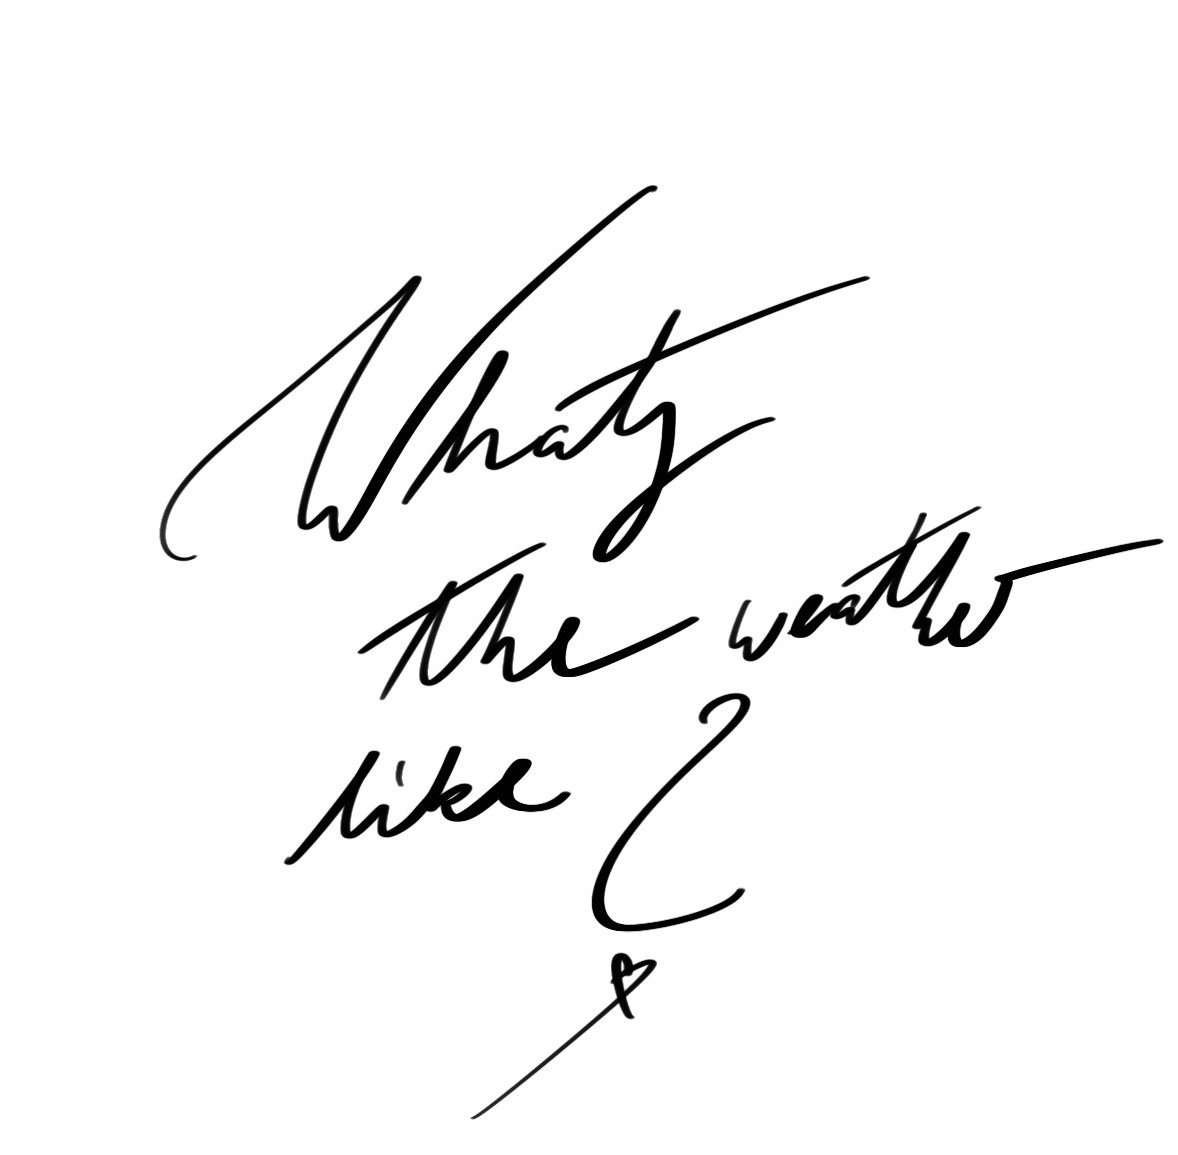 Whats
the weather
like?